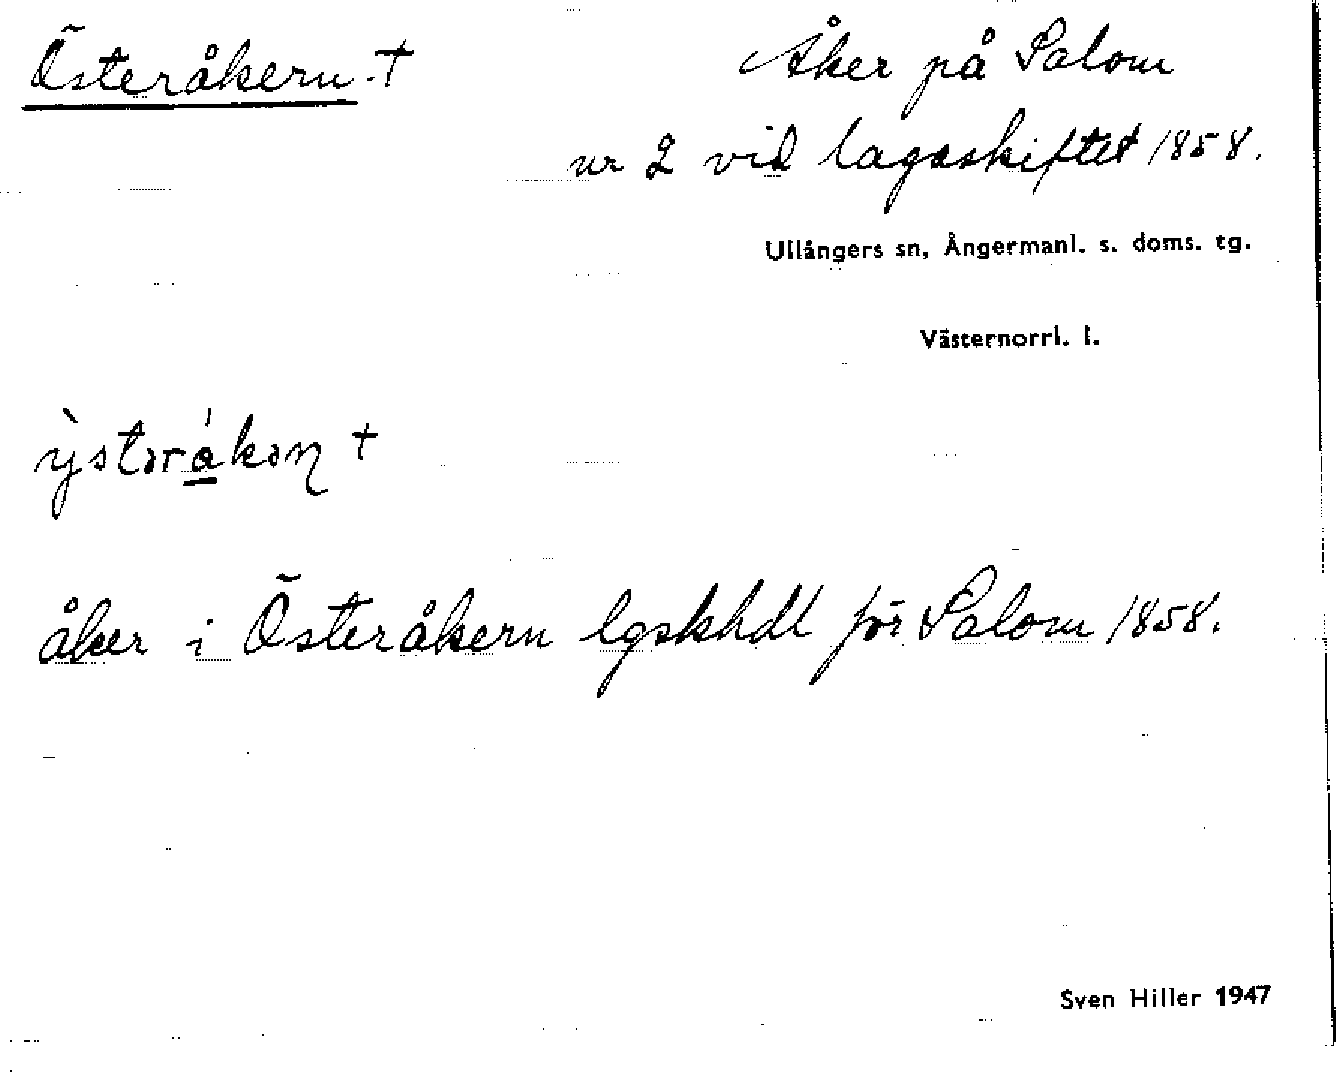 Österåkern †
Åker på Salom
nr 2 vid lagaskiftet 1858.
Ullångers sn, Ångermanl. s. doms. tg.
Västernorrl. l.
ỳstəråkəɳ †
åker i Österåkern lgskhdl för Salom 1858.
Sven Hiller 1947